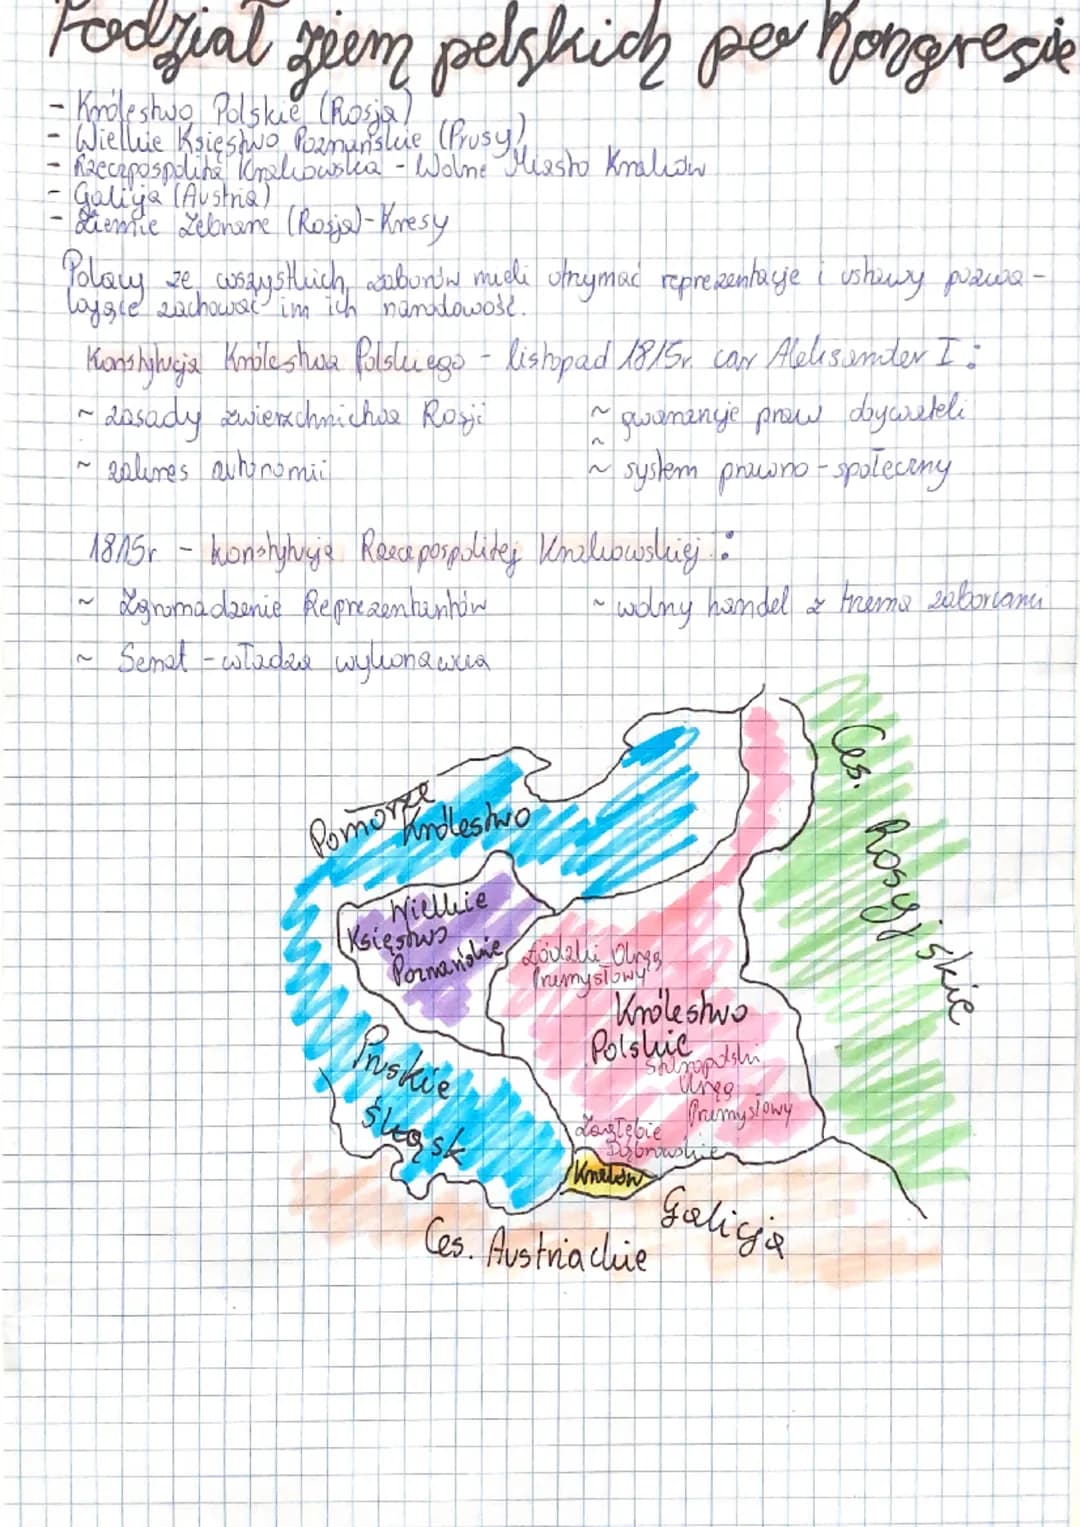 Podział ziem polskich po Kongresie
- Królestwo Polskie (Rosja)
- Wielkie Księstwo Poznańskie (Prusy)
- Rzeczpospolita Krakowska - Wolne Miasto Kraków
- Galicja (Austria)
- Ziemie Zabrane (Rosja) - Kresy
Polacy ze wszystkich zaborów mieli otrzymać reprezentacje i ustawy pozwa-
lające zachować im ich narodowość.
Konstytucja Królestwa Polskiego - listopad 1815r. car Aleksander I :
~ zasady zwierzchnictwa Rosji
~ gwarancje praw obywateli
~ zakres autonomii
~
~ system prawno - społeczny
1815r - konstytucja Rzeczpospolitej Krakowskiej :
~ Zgromadzenie Reprezentantów
~ wolny handel z trzema zaborcami
~ Senat - władza wykonawcza
Ces. Rosyjskie
Pomorze
Królestwo
Wielkie
Księstwo
Poznańskie
Łódzki Okręg
Przemysłowy
Królestwo
Polskie
Staropolski
Okręg
Przemysłowy
Pruskie
Śląsk
Zagłębie
Dąbrowskie
Kraków
Galicja
Ces. Austriackie